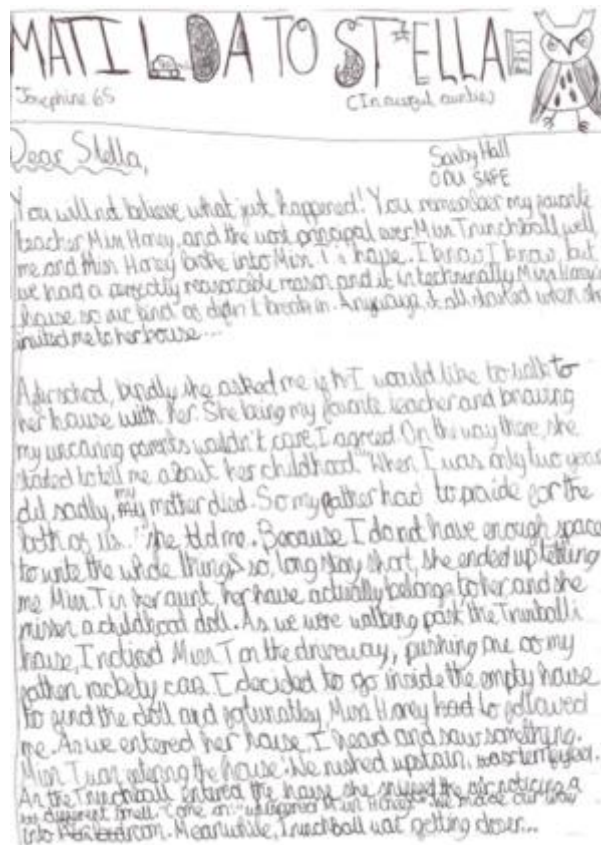 MATILDA TO STELLA
Josephine 6S
(In awful aunties)
Dear Stella,
Saxby Hall
You will not believe what just happened! You remember my favourite
teacher Miss Honey, and the worst principal ever Miss Trunchball well
me and Miss Honey broke into Miss T's house. I know I know, but
we had a perfectly reasonable reason and it is technically Miss Honey's
house so we kind of didn't break in. Anyways it all started when she
invited me to her house...
After school, kindly she asked me if I would like to walk to
her house with her. She being my favourite teacher and knowing
my uncaring parents wouldn't care, I agreed. On the way there, she
started to tell me about her childhood. "When I was only two years
old sadly, my mother died. So my father had to provide for the
both of us." she told me. Because I do not have enough space
to write the whole things so, long story short, she ended up telling
me Miss T is her aunt, her house actually belongs to her and she
misses a childhood doll. As we were walking past the Trunball's
house, I noticed Miss T on the driveway, pushing one of my
fathers rockety cars. I decided to go inside the empty house
to find the doll and Miss Honey had to followed
me. As we entered her house, I heard and saw something.
Miss T was entering the house. We rushed upstairs,
As the Trunchball entered the house she sniffed the air noticing a
different smell. "Come on." whispered Miss Honey. We made our way
into bedroom. Meanwhile, Trunchball was getting closer...